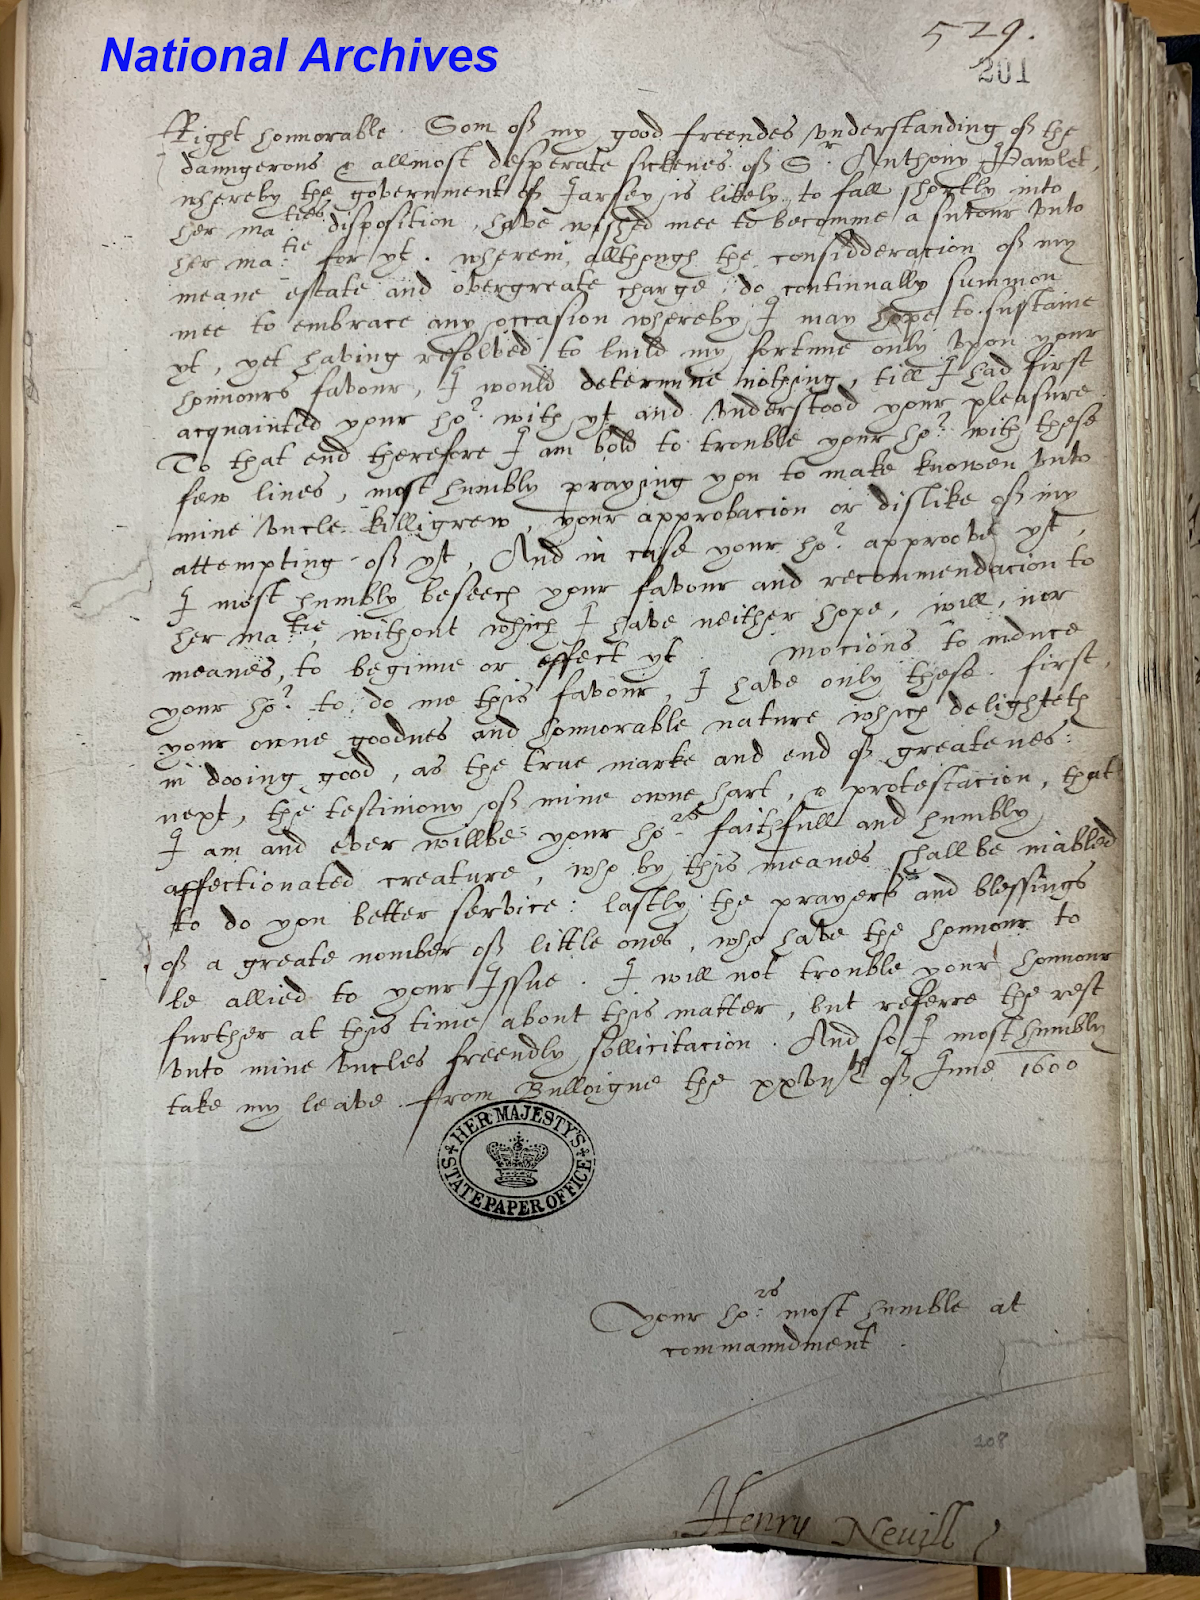 National Archives
529.
201
Right honnorable. Som of my good freendes vnderstanding of the
daungerous & allmost desperate sicknes of Sr. Anthony Pawlet,
whereby the government of Jarsey is likely to fall shortly into
her maties disposition, have wished mee to becomme a sutour vnto
her ma:tie for yt. wherein, allthough the considderacion of my
meane estate and overgreate charge, do continually summon
mee to embrace any occasion whereby I may hope to sustaine
yt, yet having resolved to build my fortune only vpon your
honnours favour, I would determine nothing, till I had first
acquainted your ho:r with yt and vnderstood your pleasure
To that end therefore I am bold to trouble your ho:r with these
few lines, most humbly praying you to make knowen vnto
mine vncle Killigrew, your approbacion or dislike of my
attempting of yt, And in case your ho:r approove yt,
I most humbly beseech your favour and recommendacion to
her ma:tie, without which I have neither hope, will, nor
meanes, to beginne or effect yt. mocions to induce
your ho:r to do me this favour, I have only these. first,
your owne goodnes and honnorable nature which delighteth
in dooing good, as the true marke and end of greatenes:
next, the testimony of mine owne hart, & protestacion, that
I am and ever willbe your ho:rs faithfull and humbly
affectionated creature, who by this meanes shall be inabled
to do you better service: lastly the prayers and blessings
of a greate nomber of little ones, who have the honnour to
be allied to your Issue. I will not trouble your honnour
further at this time about this matter, but referre the rest
vnto mine vncles freendly sollicitacion. And so I most humbly
take my leave. from Bulloigne the xxvijth of June 1600
HER MAJESTY'S
STATE PAPER OFFICE
Your ho:rs most humble at
commaundment.
208
Henry Nevill